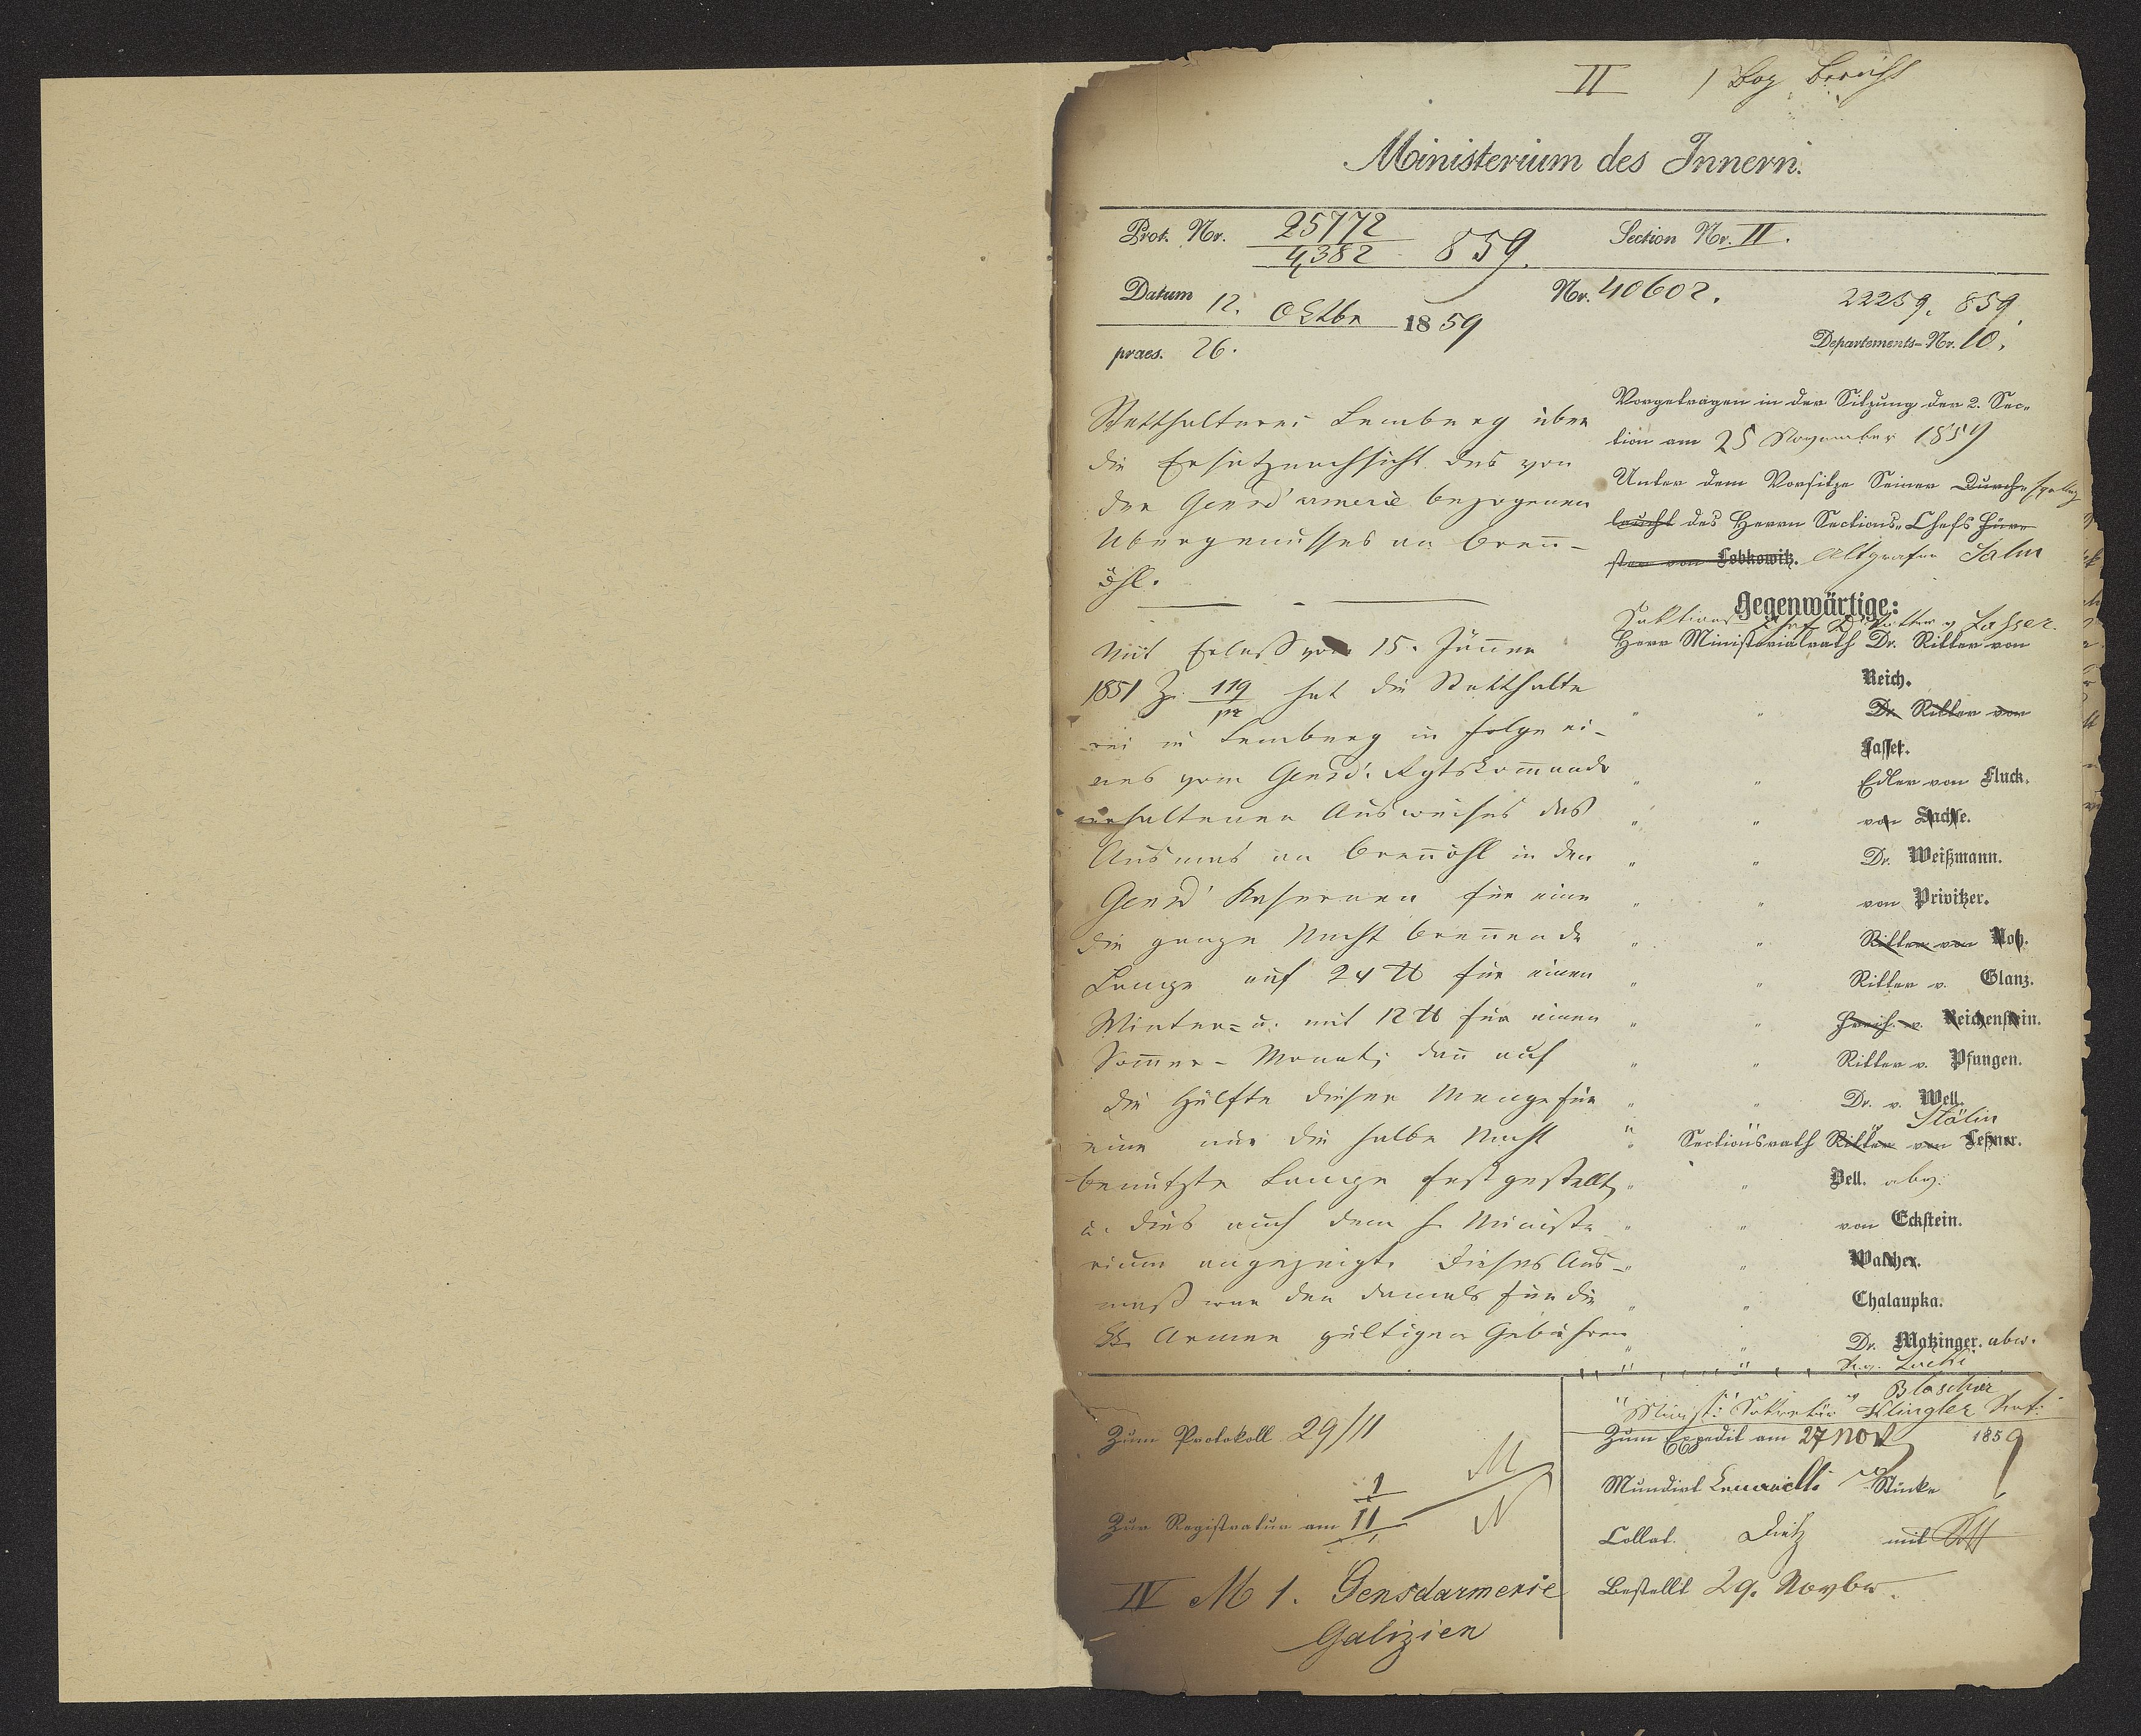 II 1 Bog Bericht
Ministerium des Innern.
Prot. Nr. 25772/4382 859.
Section Nr. II.
Datum 12. Oktbr 1859
Nr. 40602.
22259. 859.
praes. 26.
Departements-Nr. 10.
Statthalterei Lemberg über
die Ersatznachsicht des von
der Gensd'armerie bezogenen
Übergenusses an Breñ-
öhl.
Mit Erlaß vom 15. Jäner
1851 Z. 119/pr hat die Statthalte
rei in Lemberg in Folge ei-
nes vom Gensd. Rgtskom̄ando
erhaltenen Ausweises das
Ausmas an Breñöhl in den
Gensd' Kasernen für eine
die ganze Nacht breñende
Lampe auf 24 ℔ für einen
Winter= u. mit 12 ℔ für einen
Som̄er- Monat, dañ auf
die Hälfte dieser Menge für
eine nur die halbe Nacht
benützte Lampe festgestellt,
u. dies auch dem h. Ministe
rium angezeigt. Dieses Aus-
maß war den damals für die
kk. Armee gültigen Gebühren
Vorgetragen in der Sitzung der 2. Sec-
tion am 25 November 1859
Unter dem Vorsitze Seiner Durch-
laucht des Herrn Sections-Chefs Für-
sten von Lobkowitz. Altgrafen Salm
Gegenwärtige:
Sektions Chef D. Ritter v Lasser.
Herr Ministerialrath Dr. Ritter von
Reich.
" " Dr. Ritter von
Lasser.
" " Edler von Fluck.
" " von Sachse.
" " Dr. Weißmann.
" " von Privitzer.
" " Ritter von
" " Ritter v. Glanz.
" " Freih. v. Reichenstein.
" " Ritter v. Pfungen.
" " Dr. v. Well.
Stölin
" Sectionsrath Ritter von Leßner.
" " Bell. abw:
" " von Eckstein.
" " Walcher.
" " Chalaupka.
" " Dr. Matzinger. abw.
" "
" Minist: Sekretär Klingler Ref:
Zum Protokoll 29/11
Zur Registratur am 1/11
IV M 1. Gensdarmerie
Galizien
Zum Expedit am 27 Nov 1859
Mundirt Stücke
Collat. Dietz mit
Bestellt 29. Novbr.